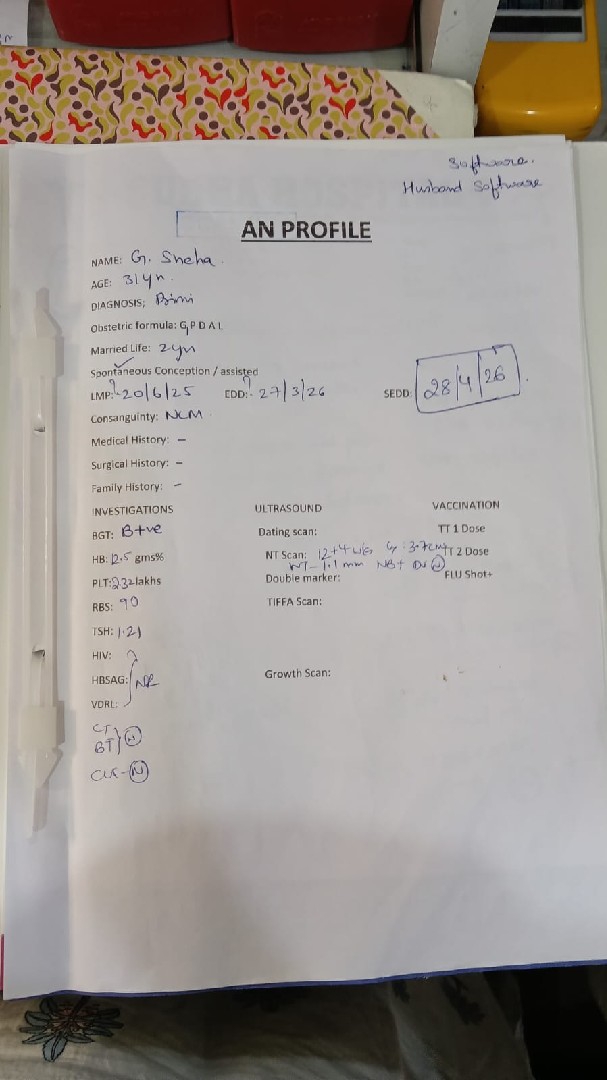 Software.
Husband Software
AN PROFILE
NAME: G. Sneha.
AGE: 31yr.
DIAGNOSIS; Primi
Obstetric formula: G P D A L
Married Life: 2 yr
Spontaneous Conception / assisted
LMP:? 20/6/25 EDD:? 27/3/26 SEDD: 28/4/26
Consanguinty: NCM.
Medical History: –
Surgical History: –
Family History: –
INVESTIGATIONS ULTRASOUND VACCINATION
BGT: B+ve Dating scan: TT 1 Dose
HB: 12.5 gms% NT Scan: 12+4 wks 3.7cm TT 2 Dose
NT – 1.1 mm NB+ N
PLT: 2.32 lakhs Double marker: FLU Shot+
RBS: 90 TIFFA Scan:
TSH: 1.21
HIV:
HBSAG: NR Growth Scan:
VDRL:
CT
BT } N
N